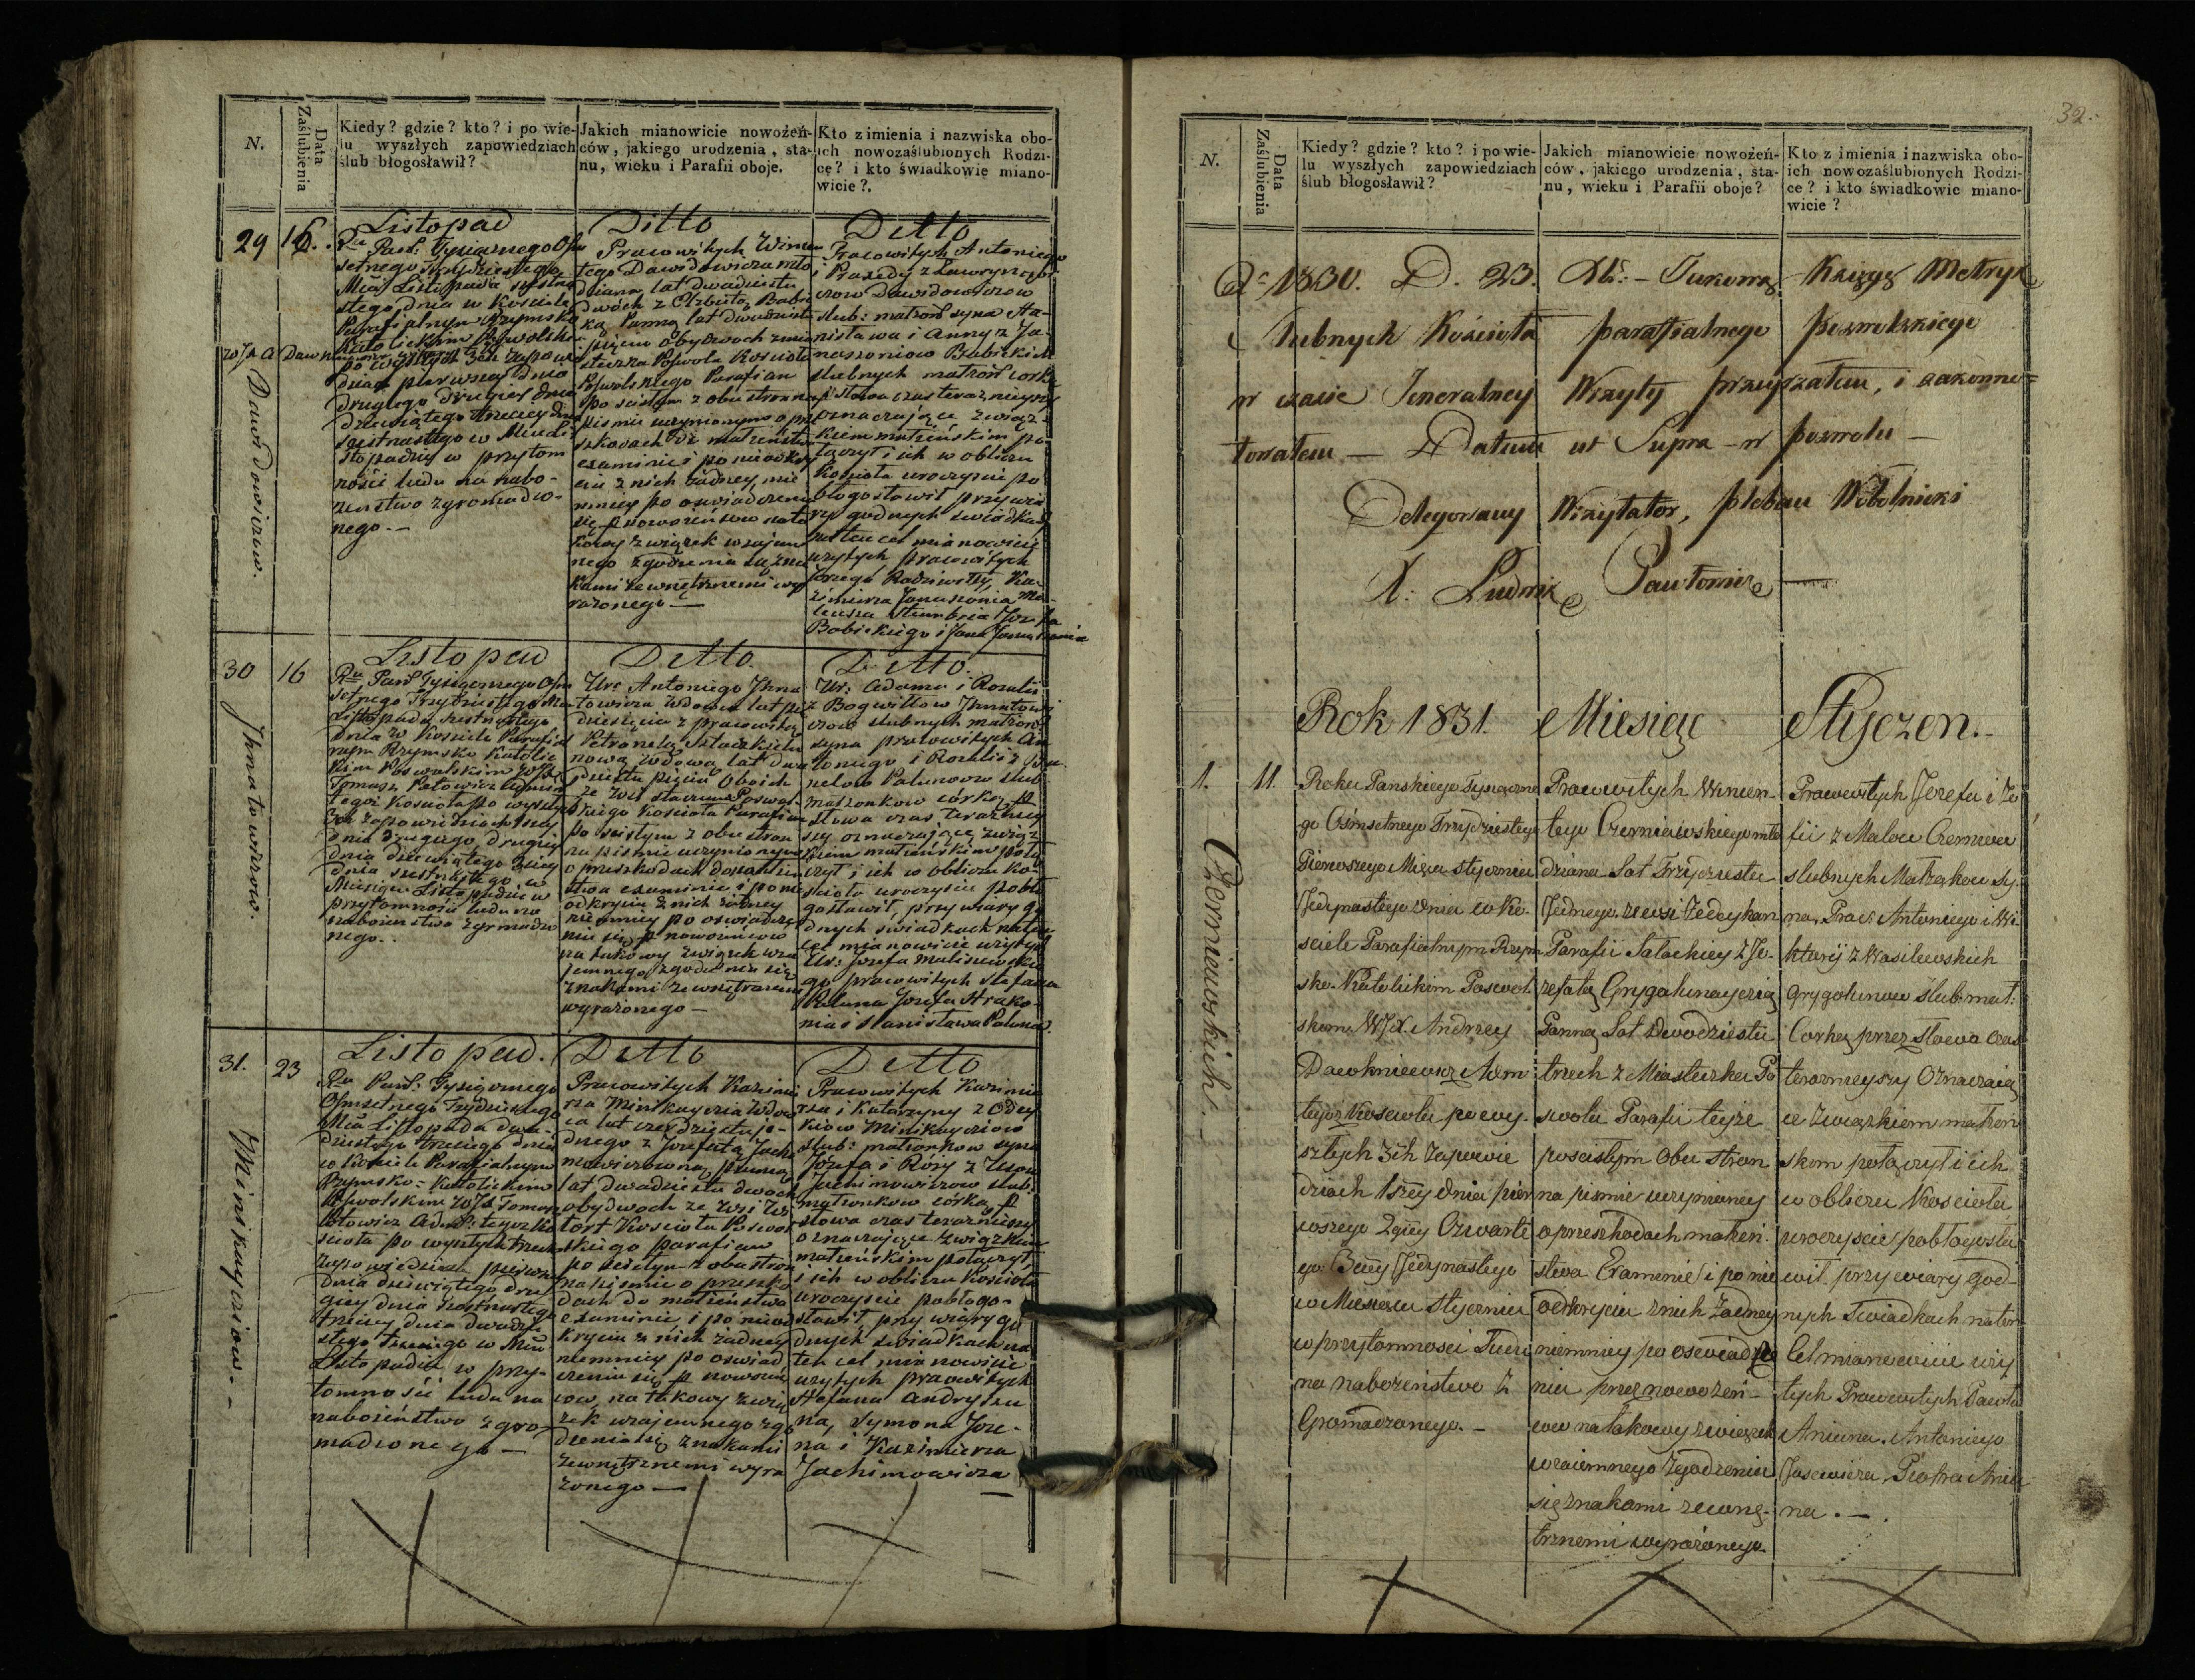 N.
Data Zaślubienia
Kiedy? gdzie? kto? i po wie-
lu wyszłych zapowiedziach
ślub błogosławił?
Jakich mianowicie nowożeń-
ców, jakiego urodzenia, sta-
nu, wieku i Parafii oboje.
Kto z imienia i nazwiska obo-
ich nowozaślubionych Rodzi-
cę? i kto świadkowie miano-
wicie?
29
16.
Dawidowiczow.
Listopad
Pań: Tysiącznego Ośm
setnego Trzydziestego
Mca Listopada szesna
stego dnia w Kościele
Parafialnym Rzymsko
Katolickim Poswolskim
dziach pierwszey dnia
drugiego drugiey dnia
dziewiątego trzeciey dnia
szestnastego w Miesi
Listopadzie w przytom
ności ludu na nabo-
żeństwo zgromadzo-
nego.—
Ditto
Pracowitych Wincen
tego Dawidowicza mło
dziana lat dwadziestu
dwóch z Elżbietą Babi
cką Panną lat dwadziestu
po ścisłym z obu stron na
piśmie uczynionym o prze
szkodach do małżeństwa
examinie i po nieodkry
ciu z nich żadney, nie
mniey po oświadczeniu
się p. nowożeńcow na ta
kowy związek wzajem
nego zgodzenia się zna
kami zewnętrznemi wy
rażonego—
Ditto
Pracowitych Antoniego
i Praxedy z Ławrynowi
czow Dawidowiczow
ślub: małżon syna Sta-
nisława i Anny z Ja-
naszoniow Babickich
ślubnych małżon corkę
p. słowa czas teraznieyszy
oznaczaiące związ-
kiem małżeńskim po
łączył i ich w obliczu
Kościoła uroczyscie po
błogosławił przy wia
ry godnych świadkach
na ten cel mianowicie
użytych pracowitych
Jerzego Radziwiłły, Ka-
źmierza Janaszonia Ma
teusza Stumbria Józefa
Babickiego i Jana Janaszonia
30
16
Jhnatowiczow
Listopad
Ru Pań Tysiącznego Ośm
setnego Trzydziestego Mca
Listopada szestnastego
dnia w Kościele Parafial
nym Rzymsko Katolic
kim Poswolskim WJX
Tomasz Połowicz Admini
tegoż Kościoła po wyszłych
3ch zapowiedziach 1szey
dnia drugiego, drugiey
dnia dziewiątego 3ciey
dnia szestnastego w
Miesiącu Listopadzie w
przytomności ludu na
nabożeństwo zgromadzo
nego.
Ditto.
Ur: Antoniego Jhna
towicza Wdowca lat pię
dziesięciu z pracowitą
Petronelą Sztackielu
nową Wdową lat dwa
dziestu pięciu Oboich
skiego Kościoła Parafian
po ścisłym z obu stron
na piśmie uczynionym
o przeszkodach do małżeń
stwa examinie i ponie
odkryciu z nich żadney
niemniey po oświadcze
niu się p. nowożeńcow
na takowy związek wza
jemnego zgodzenia się
znakami zewnętrznemi
wyrażonego—
Ditto.
Ur: Adama i Rozalii
z Bogwiłłow Jhnatowi
czow ślubnych małżon
syna pracowitych An
toniego i Rozalii z
nelow Palunow ślub
małżonkow córkę p.
słowa czas teraźniey
szy oznaczające związ
kiem małżeńskim połą
czył i ich w obliczu Ko-
ścioła uroczyscie pobło
gosławił, przy wiary go
dnych świadkach na ten
cel mianowicie użytych
Ur: Józefa Maliszewskie
go pracowitych Stefana
Paluna Józefa Strako-
nia i Stanisława Paluna
31.
23
Minikayciow.—
Listopad.
Ru Pań: Tysiącznego
Ośmsetnego Trzydziestego
Mca Listopada dwu-
dziestego trzeciego dnia
w Kościele Parafialnym
Rzymsko-Katolickim
Poswolskim WJX Tomasz
Połowicz Adm: tegoż Ko
ścioła po wyszłych trzech
zapowiedziach pierwszey
dnia dziewiątego dru
giey dnia szestnastego
trzeciey dnia dwudzie
stego trzeciego w Mcu
Listopadzie w przy-
tomności ludu na
nabożeństwo zgro-
madzonego—
Ditto
Pracowitych Kazimie
rza Minikaycia Wdow
ca lat czterdziestu je-
dnego z Jozefatą Jachi
mowiczowną panną
lat dwadziestu dwóch
obydwoch ze Wsi
Kościoła Poswol
skiego parafian
po ścisłym z obustron
na piśmie o przeszko
dach do małżeństwa
examinie i po nieod
kryciu z nich żadney
niemniey po oświad
czeniu się p. nowożeń
cow na takowy zwią
zek wzajemnego zgo
dzenia się znakami
zewnętrznemi wyra
żonego—
Ditto
Pracowitych Kazimie
rza i Katarzyny z
Minikayciow
ślub: małżonkow syna
Józefa i Róży z
Jachimowiczow ślub:
małżonkow córkę p.
słowa czas teraznieyszy
oznaczające związkiem
małżeńskim połączył
i ich w obliczu Kościoła
uroczyscie pobłogo-
sławił przy wiary go
dnych świadkach na
ten cel mianowicie
użytych pracowitych
Stefana Andryszu
na, Symona Joze-
na i Kazimierza
Jachimowicza
32.
N.
Data Zaślubienia
Kiedy? gdzie? kto? i po wie-
lu wyszłych zapowiedziach
ślub błogosławił?
Jakich mianowicie nowożeń-
ców, jakiego urodzenia, sta-
nu, wieku i Parafii oboje?
Kto z imienia i nazwiska obo-
ich nowozaślubionych Rodzi-
ce? i kto świadkowie miano-
wicie?
1830. D. 23. Takową Księgę Metryk
ślubnych Kościoła parafialnego poswolskiego
w czasie Jeneralney Wizyty przeyrzałem, i zakonno-
towałem — Datum ut Supra w poswolu —
Delegowany Wizytator, pleban Wobolnicki
X: Ludwik Pawłowicz
Rok 1831. Miesiąc Styczen.—
1.
11.
Czerniewskich.—
Roku Pańskiego Tysiączne
go Ośmsetnego Trzydziestego
Pierwszego Mięca stycznia
Jedynastego dnia w Ko-
sciele Parafialnym Rzym
sko-Katolickim Poswol-
skim WJX. Andrzey
Dawkniewicz Adm:
tegoż Koscioła po wy-
szłych 3ch Zapowie
dziach 1szey dnia pier
wszego 2giey Czwarte
go 3ciey Jedynastego
w Miesiącu styczniu
w przytomnosci Ludu
na nabożeństwo z
Gromadzonego.—
Pracowitych Wincen-
tego Czerniewskiego mło
dziana Lat Trzydziestu
Jednego ze wsi Zedeykan
Parafii Sałackiey z Jo-
zefatą Grygalunayczią
Panną Lat Dwodziestu
trzech z Miasteczka Po
swola Parafii teyże
po scisłym Obu stron
na pismie uczynioney
o przeszkodach małżeń-
stwa Examinie i po nie
odkryciu z nich żadney
niemniey po oświadcze
niu przez nowożeń-
cow na takowy związek
wzaiemnego zgodzenia
się znakami zewnę-
trznemi wyrażonego.
Pracowitych Jozefa i Zo
fii z Malow Czerniew
slubnych Małżąkow Sy-
na, Prac: Antoniego i Wi-
ktorij z Wasilewskich
Grygalunow ślub: małż:
Corkę przez słowa czas
terazneyszy Oznaczaią
ce związkiem małżeń
skim połączył i ich
w obliczu Kościoła
uroczyscie pobłogosła
wił przy wiary god-
nych Swiadkach na ten
Cel mianowicie uży
tych Pracowitych Pawła
Aniuna. Antoniego
Jasewicza, Piotra Aniu
na.—.